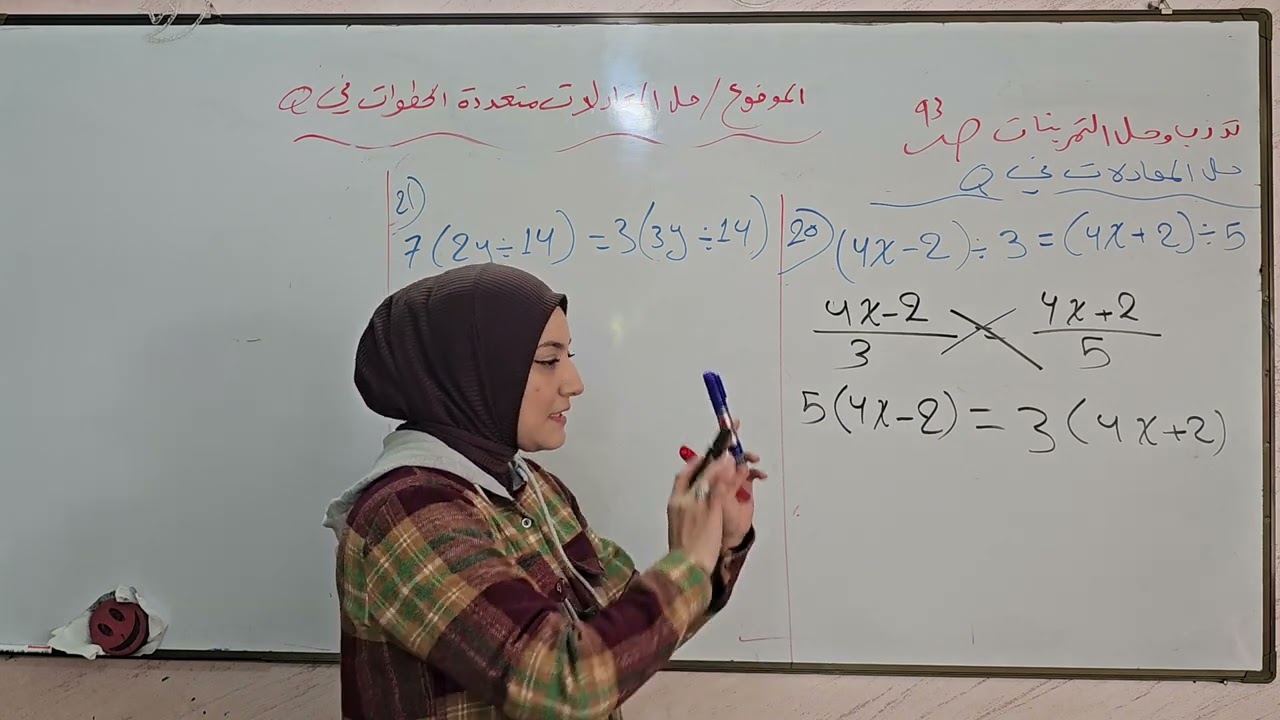 الموضوع / حل المعادلات متعددة الخطوات في Q
تدرب وحل التمرينات صـ 93
حل المعادلات في Q
20) (4x-2)÷3=(4x+2)÷5
4x-2/3 = 4x+2/5
5(4x-2)=3(4x+2)
21)
7(2y÷14)=3(3y÷14)